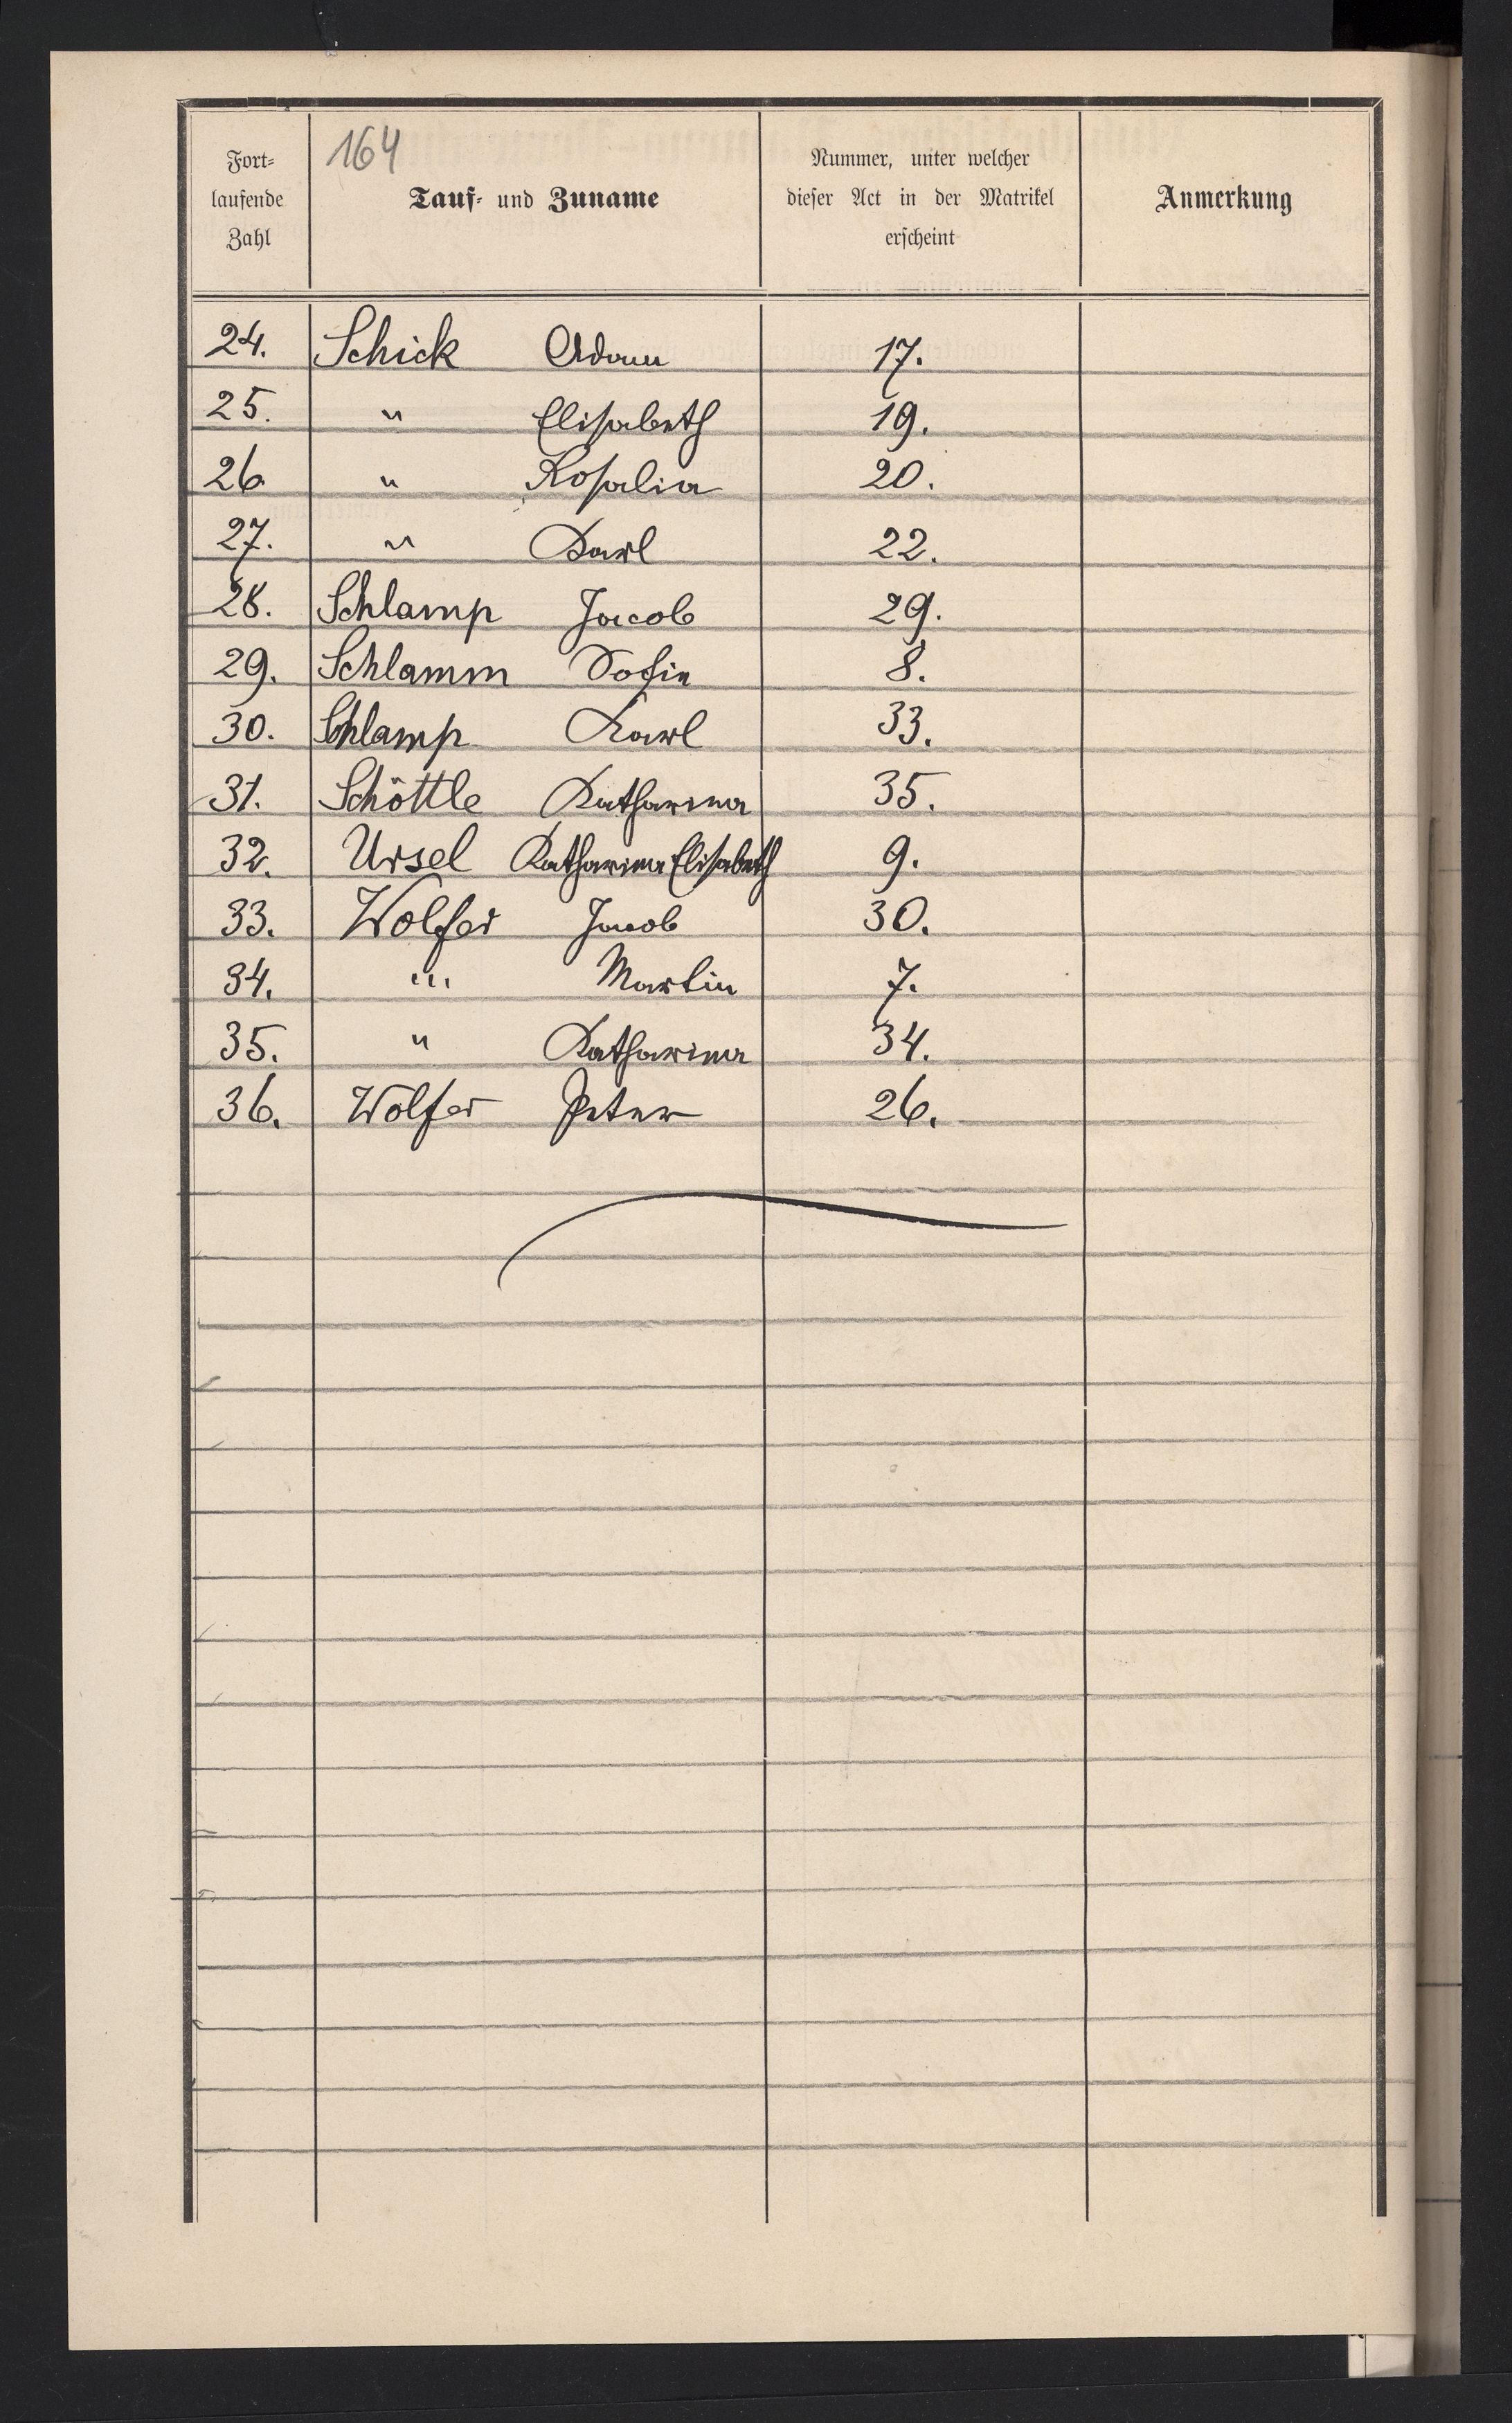 164
Fort-
laufende
Zahl
Tauf- und Zuname
Nummer, unter welcher
dieser Act in der Matrikel
erscheint
Anmerkung
24. Schick Adam 17.
25. " Elisabeth 19.
26. " Rosalia 20.
27. " Karl 22.
28. Schlamp Jacob 29.
29. Schlamm Sofie 8.
30. Schlamp Karl 33.
31. Schöttle Katharina 35.
32. Ursel Katharina Elisabeth 9.
33. Wolfer Jacob 30.
34. " Martin 7.
35. " Katharina 34.
36. Wolfer Peter 26.